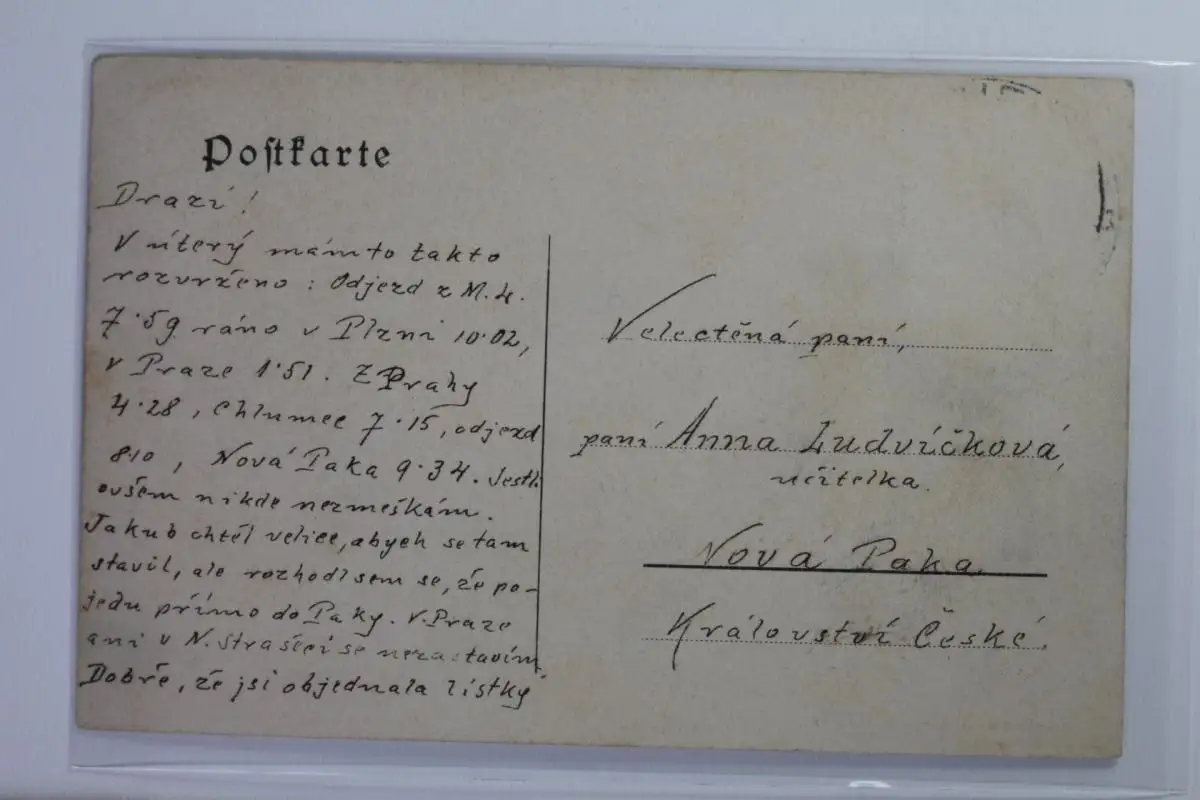 Postkarte
Drazí!
V úterý mám to takto
rozvrženo: Odjezd z M.L.
7·59 ráno v Plzni 10·02,
v Praze 1·51. Z Prahy
4·28, Chlumec 7·15, odjezd
810, Nová Paka 9·34. Jestli
ovšem nikde nezmeškám.
Jakub chtěl velice, abych se tam
stavil, ale rozhodl sem se, že po-
jedu přímo do Paky. V Praze
ani v N. Strašecí se nezastavím.
Dobře, že jsi objednala lístky
Velectěná paní,
paní Anna Ludvíčková,
učitelka.
Nová Paka
Království České.